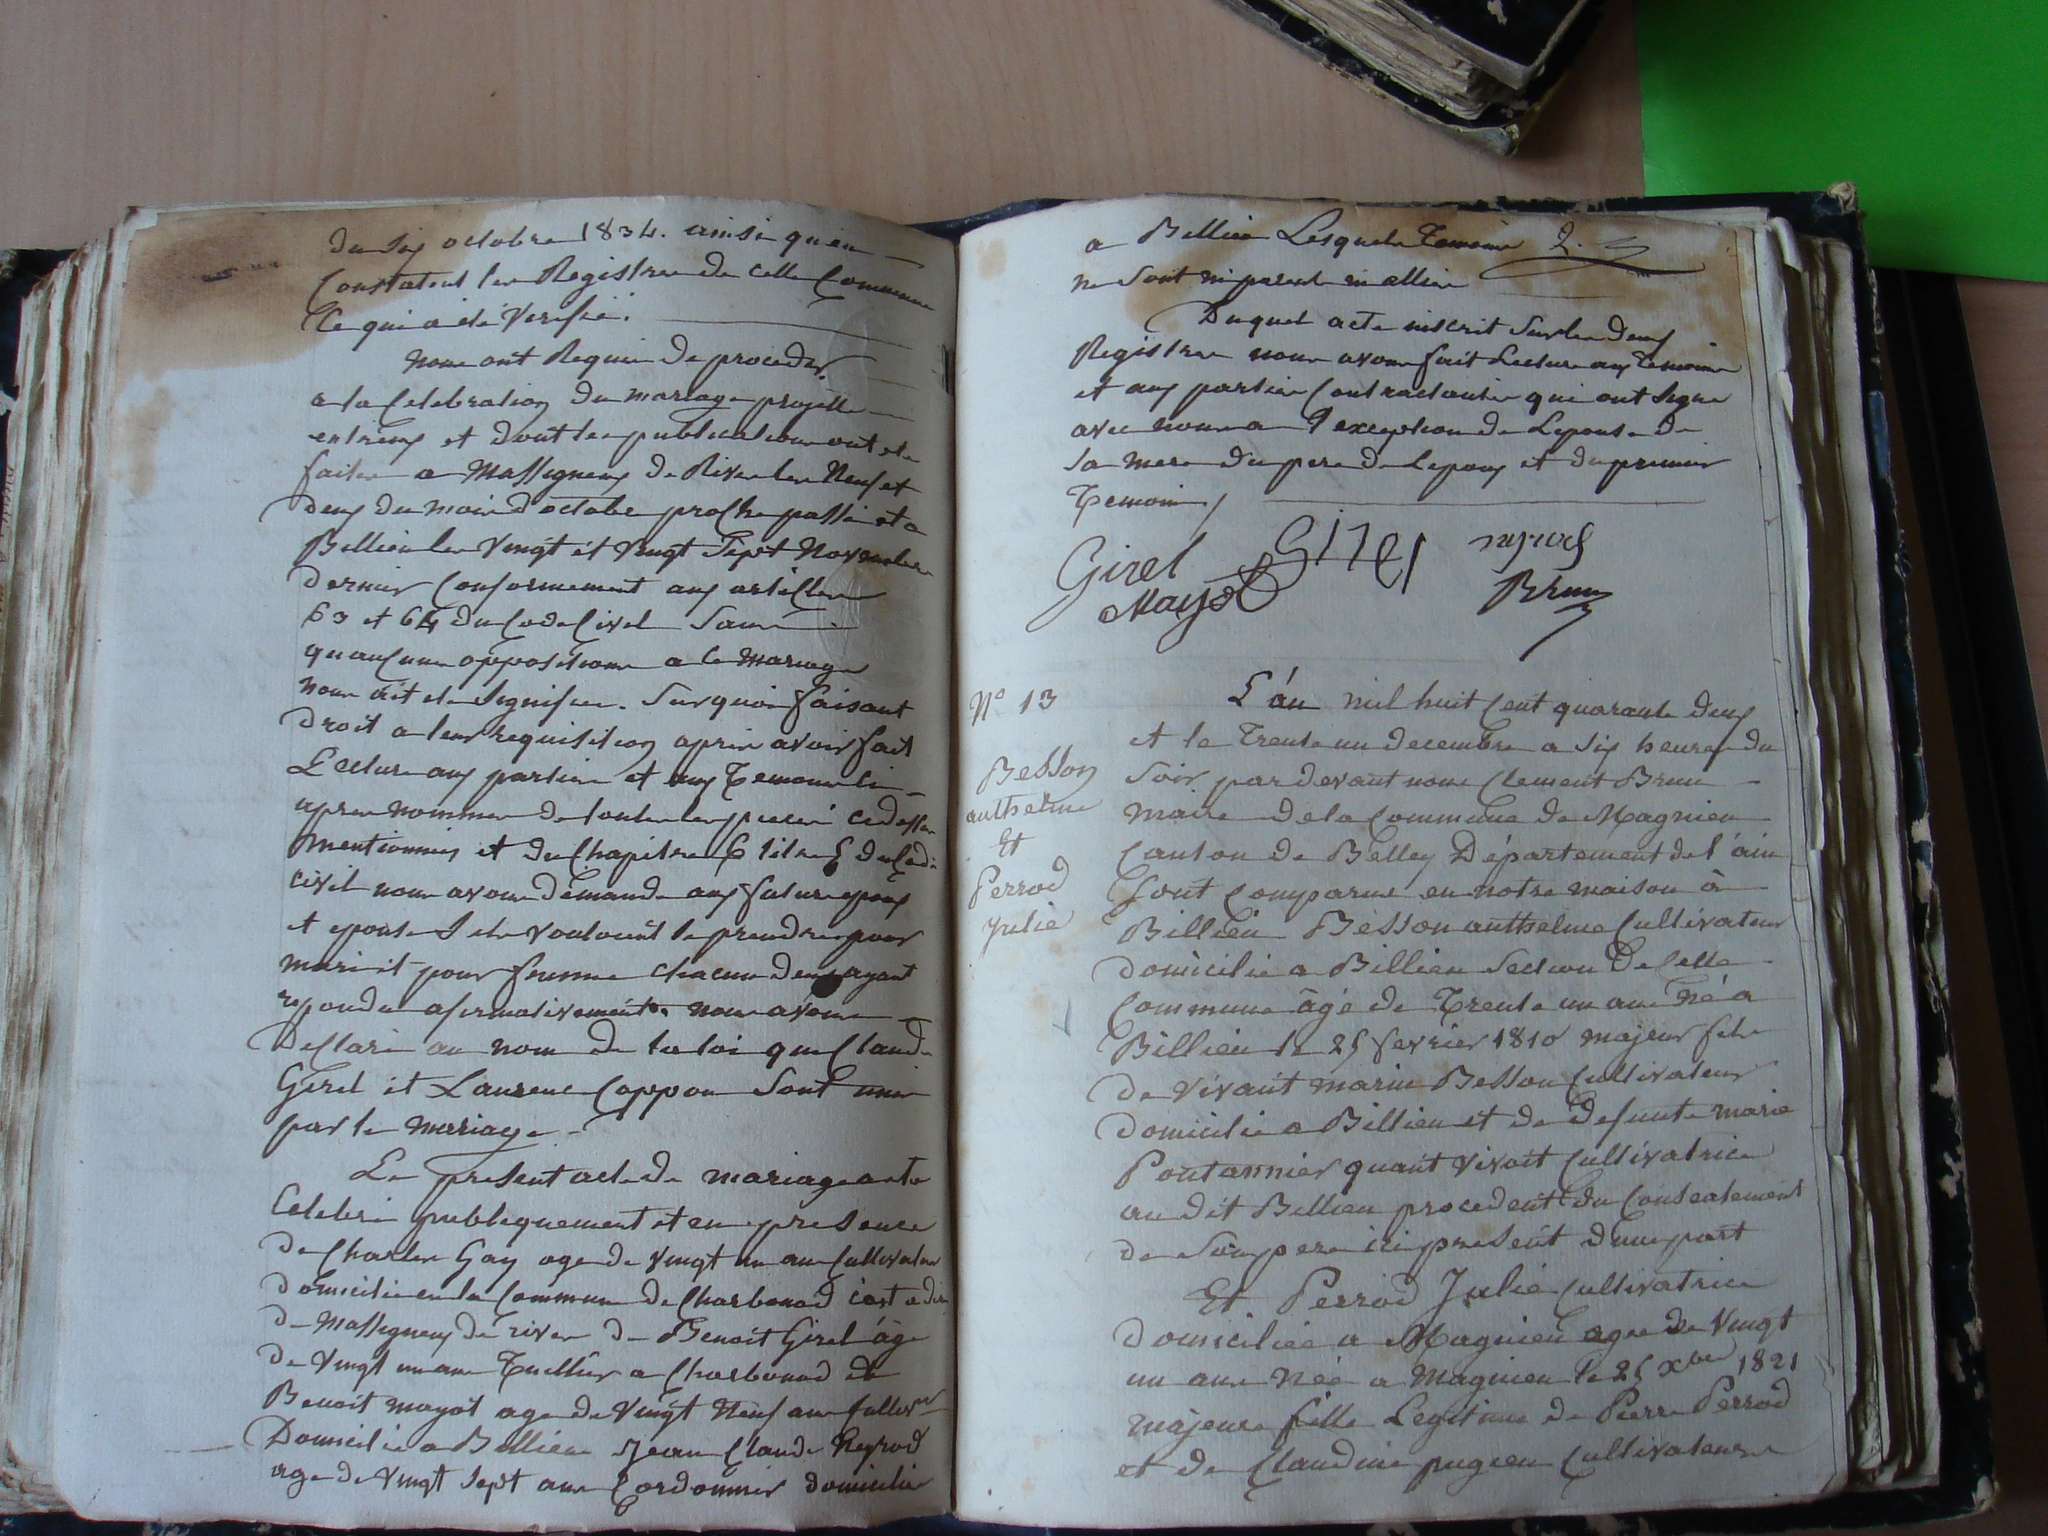 du six octobre 1834. ainsi qu'en
Constatent les Registres de cette Commune
Ce qui a été Verifié.
nous ont Requis de proceder
a la Celebration du mariage projetté
entreux et dont les publications ont ete
faites a Massigneux de Rives les Neuf et
deux du mois d'octobre proche passé et a
Billieu les Vingt et Vingt Sept Novembre
dernier Conformement aux articles
63 et 64 du Code Civil Sans
qu'aucune opposition a ce mariage
nous ait ete Signifiée. Sur quoi faisant
droit a leur requisition apres avoir fait
Lecture aux parties et aux Temoins ci
apres nommés de toutes les pieces cidessus
mentionnées et du Chapitre 6 titre 5 du Code
civil nous avons demandé aux futurs epoux
et epouse S'ils vouloient se prendre pour
mari et pour femme chacun deux ayant
repondu afirmativement. nous avons
Declaré au nom de la loi que Claude
Girel et Laurence Coppon Sont unis
par le mariage.
Le present acte de mariage a ete
Celebré publiquement et en presence
de Charles Gay age de vingt un ans Cultivateur
domicilié en la Commune de Charbonod c'est a dire
de Massigneux de rives de Benoit Girel âgé
de Vingt un ans Tuellier a Charbonod de
Benoit mayot age de Vingt Neuf ans Cultivr
Domicilié a Billieu Jean Claude Reyrod
age de Vingt Sept ans Cordonnier domicilié
a Billieu Lesquels Temoins
ne Sont ni parents ni alliés
Duquel acte inscrit Sur les deux
Registres nous avons fait Lecture aux Temoins
et aux parties Contractantes qui ont Signé
avec nous a l'exception de Lepouse de
Sa mere du pere de Lepoux et du premier
Temoin
Girel Girel
Mayot Brun
No 13
Besson
anthelme
Et
Perrod
Julie
L'an mil huit Cent quarante deux
et le Trente un decembre a six heures du
Soir par devant nous Clement Brun
maire de la Commune de Magnieu
Canton de Belley Département de l'ain
Sont Comparus en notre maison à
Billieu Besson anthelme Cultivateur
domicilié a Billieu Section De Cette
Commune âgé de Trente un ans Né a
Billieu le 25 fevrier 1810 majeur fils
de vivant marin Besson Cultivateur
domicilié a Billieu et de defunte marie
Pontannier quant vivoit Cultivatrice
au dit Billieu procedent du Consentement
de Son pere ici présent d'une part
Et Perrod Julie Cultivatrice
domiciliée a Magnieu agée de Vingt
un ans Née a Magnieu le 25 Xbre 1821
majeure fille Legitime de Pierre Perrod
et de Claudine pugeu Cultivateurs